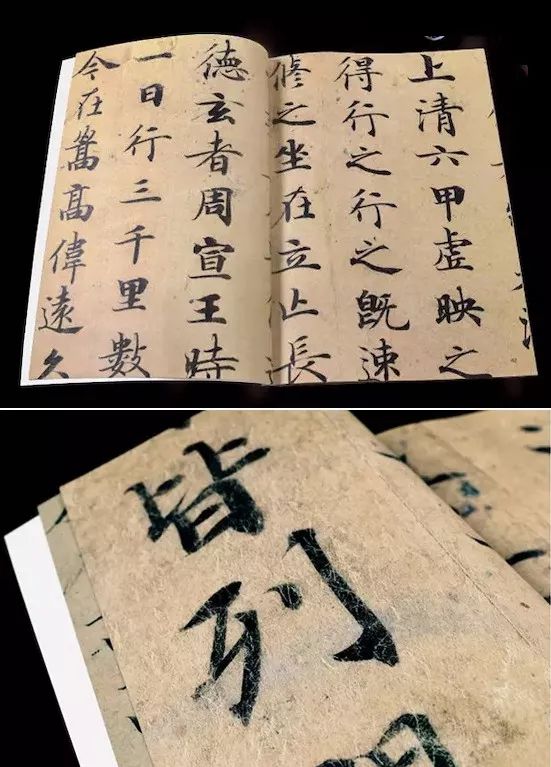 上清六甲虛映之
得行之行之既速
修之坐在立亡長
德玄者周宣王時
一日行三千里數
今在嵩髙偉遠久
皆列